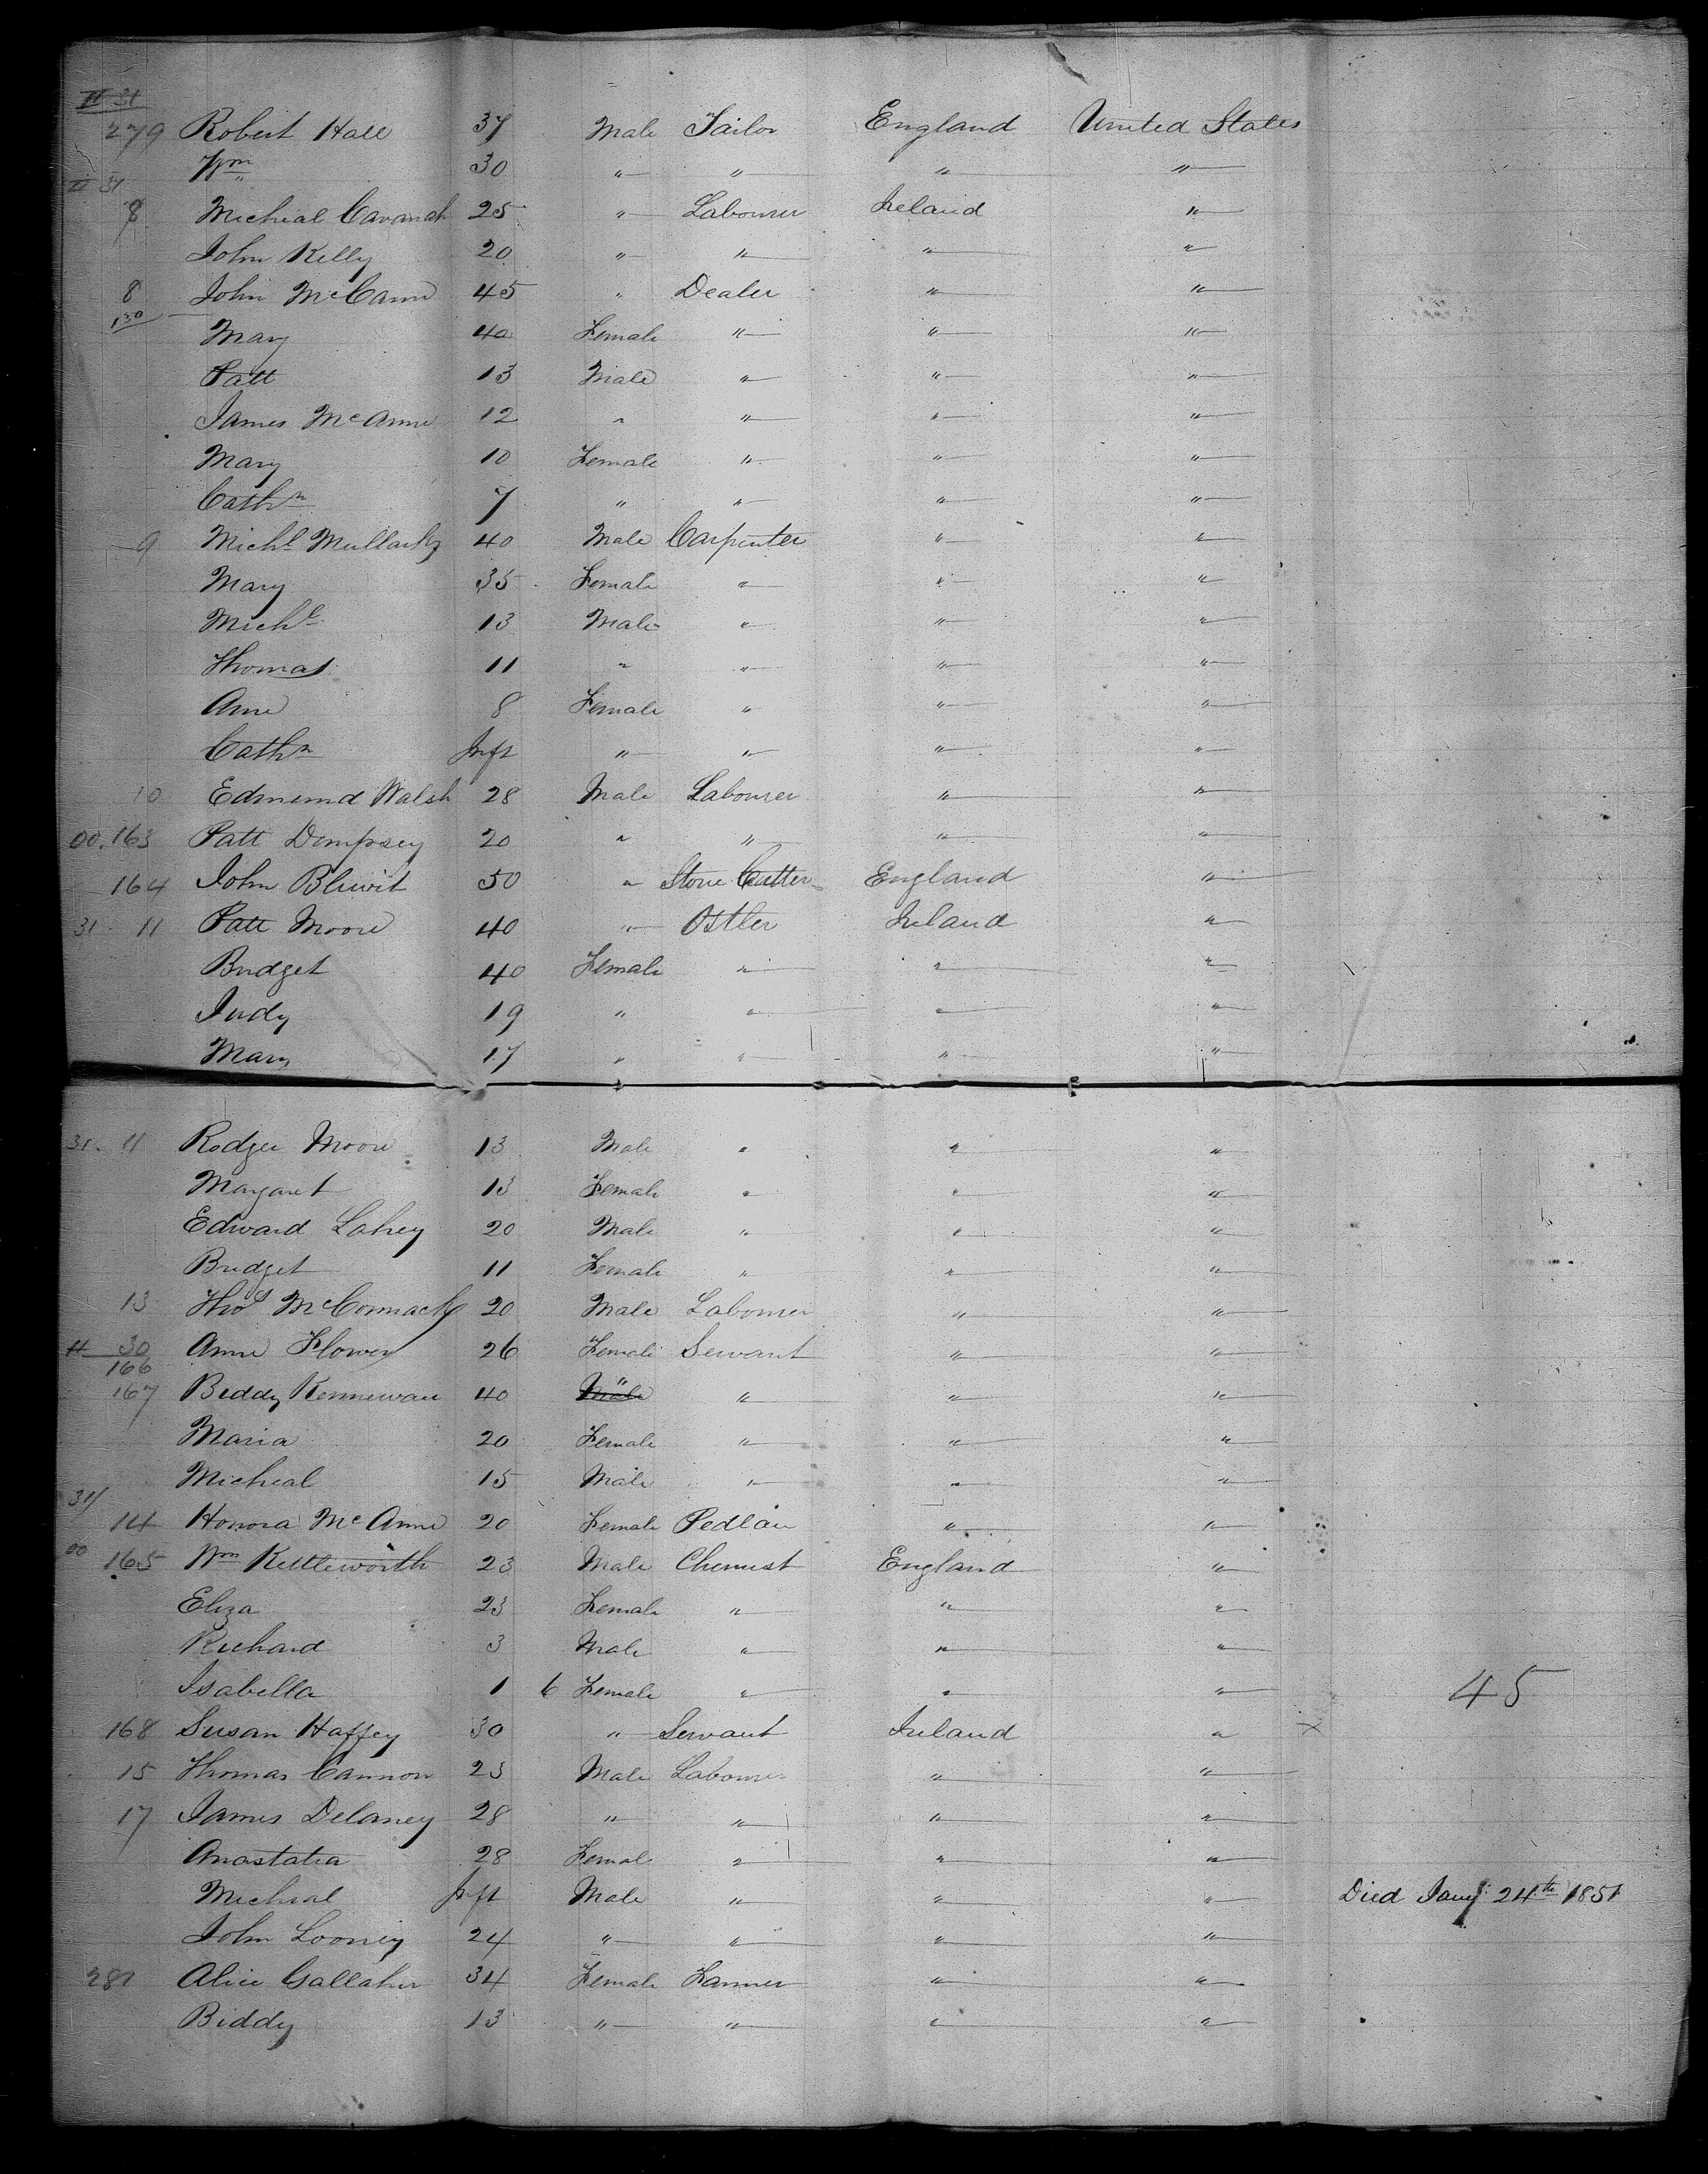 II 31
279 Robert Hall 37 Male Tailor England United States
Wm " 30 " " " "
II 31
8 Micheal Cavanah 25 " Labourer Ireland "
John Kelly 20 " " " "
8 John McCann 45 " Dealer " "
130
Mary 40 Female " " "
Patt 13 Male " " "
James McAnne 12 " " " "
Mary 10 Female " " "
Cathn 7 " " " "
9 Michl Mullarky 40 Male Carpenter " "
Mary 35 Female " " "
Michl 13 Male " " "
Thomas 11 " " " "
Anne 8 Female " " "
Cathn Inft " " " "
10 Edmemd Walsh 28 Male Labourer " "
00. 163 Patt Dempsey 20 " " " "
164 John Bluwit 50 " Stone Cutter England "
31 11 Patt Moore 40 " Ostler Ireland "
Bridget 40 Female " " "
Judy 19 " " " "
Mary 17 " " " "
31. 11 Rodger Moore 13 Male " " "
Margaret 13 Female " " "
Edward Lahey 20 Male " " "
Bridget 11 Female " " "
13 Thos McCormack 20 Male Labourer " "
30 Anne Flower 26 Female Servant " "
166
167 Biddy Kennewan 40 Male " " " "
Maria 20 Female " " "
Micheal 15 Male " " "
31
14 Honora McAnne 20 Female Pedlar " "
00 165 Wm Kettleworth 23 Male Chemist England "
Eliza 23 Female " " "
Richard 3 Male " " "
Isabella 1 6 Female " " " 45
168 Susan Haffey 30 " Servant Ireland " x
15 Thomas Cannon 23 Male Labourer " "
17 James Delaney 28 " " " "
Anastatia 28 Female " " "
Micheal Inft Male " " " Died Jany 24th 1851
John Looney 24 " " " "
281 Alice Gallaher 34 Female Farmer " "
Biddy 13 " " " "